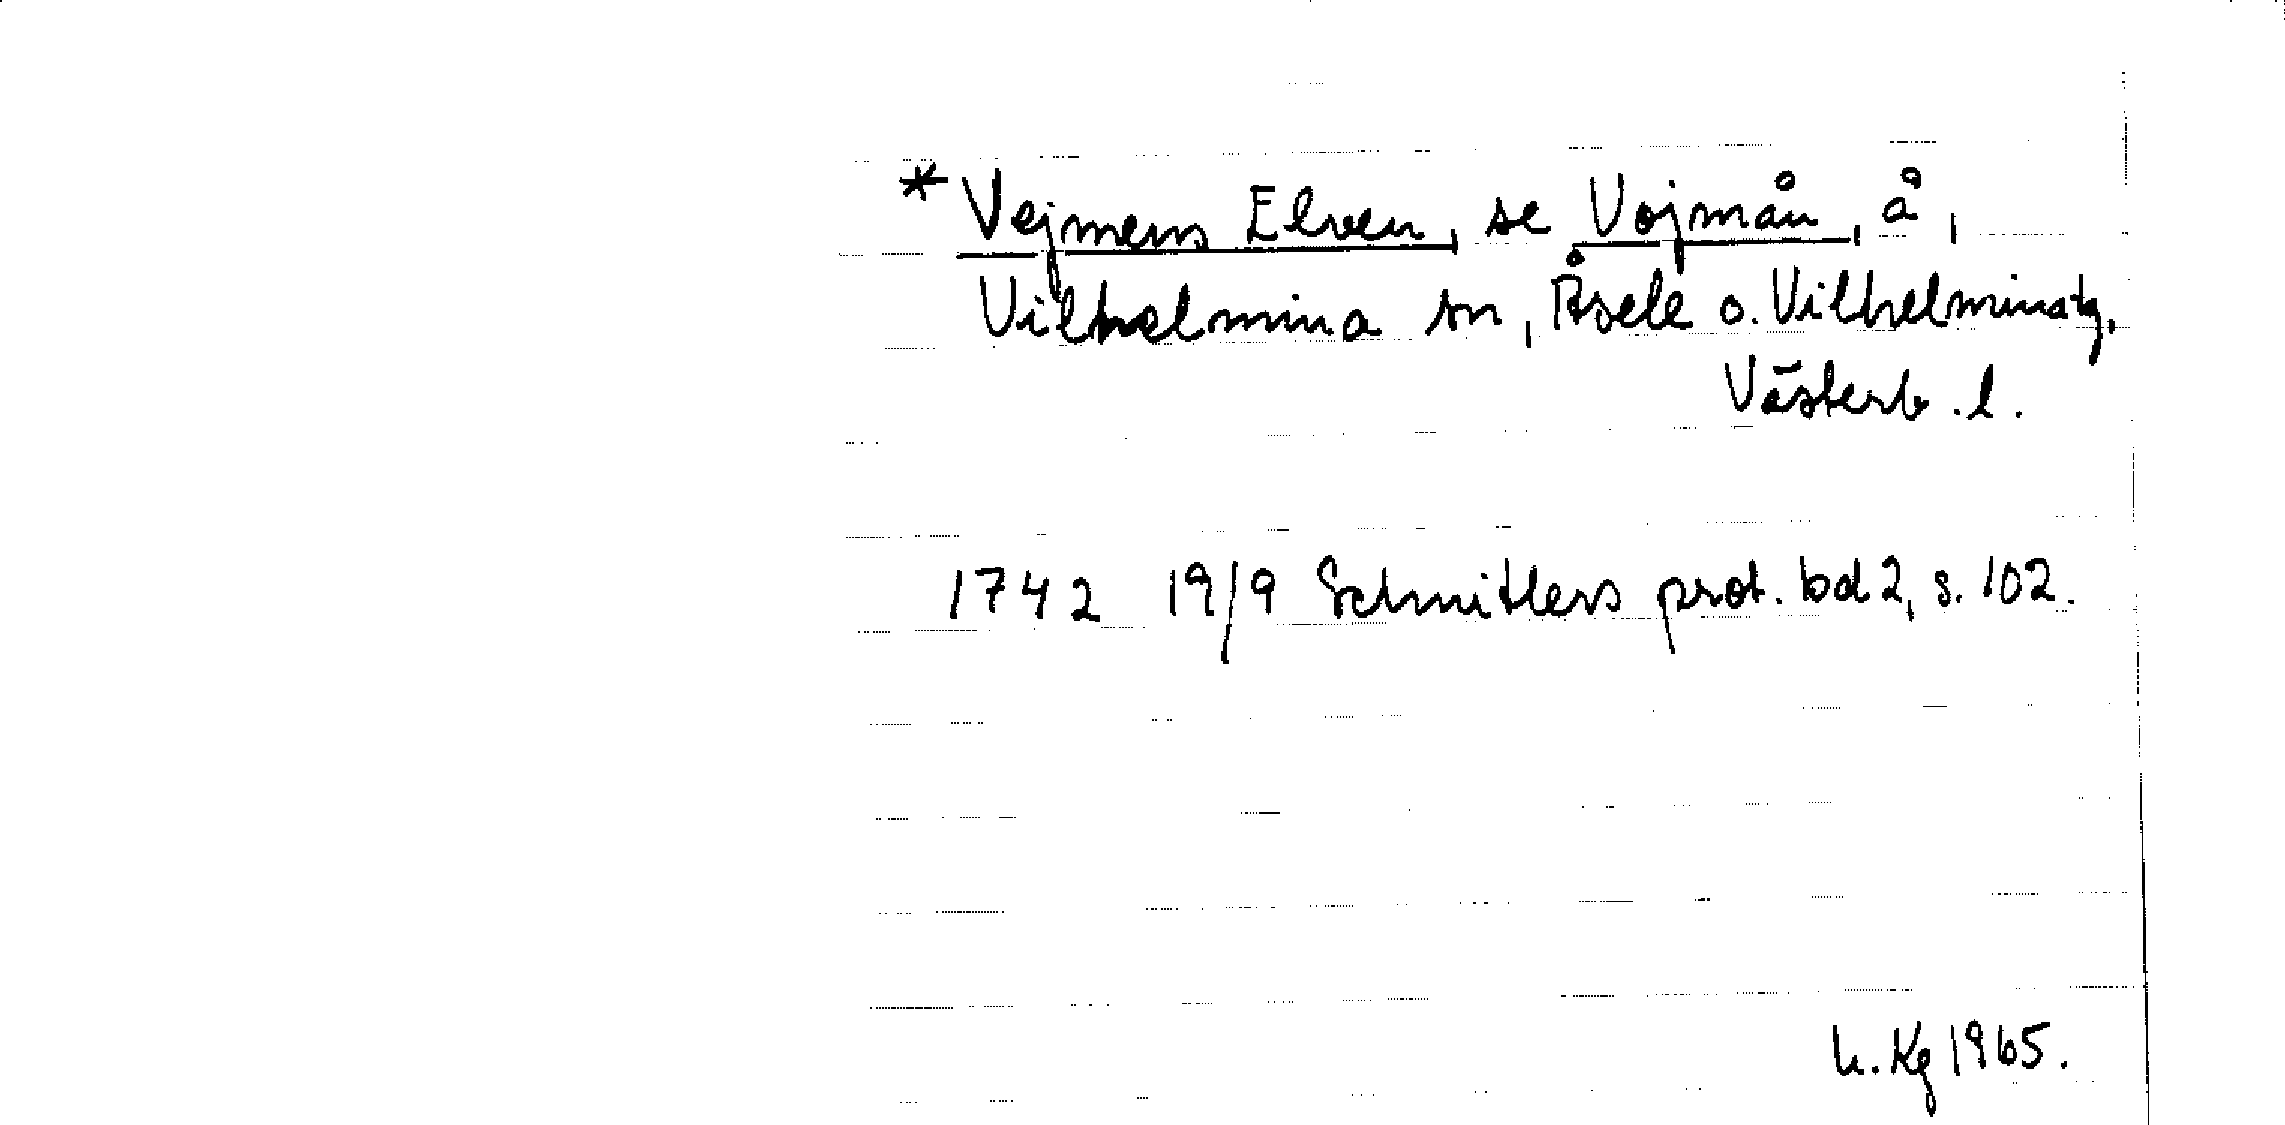 * Vejmens Elven, se Vojmån, å,
Vilhelmina sn, Åsele o. Vilhelmina tg,
Västerb. l.
1742 19/9 Schnitlers prot. bd 2, s. 102.
h. Kg 1965.